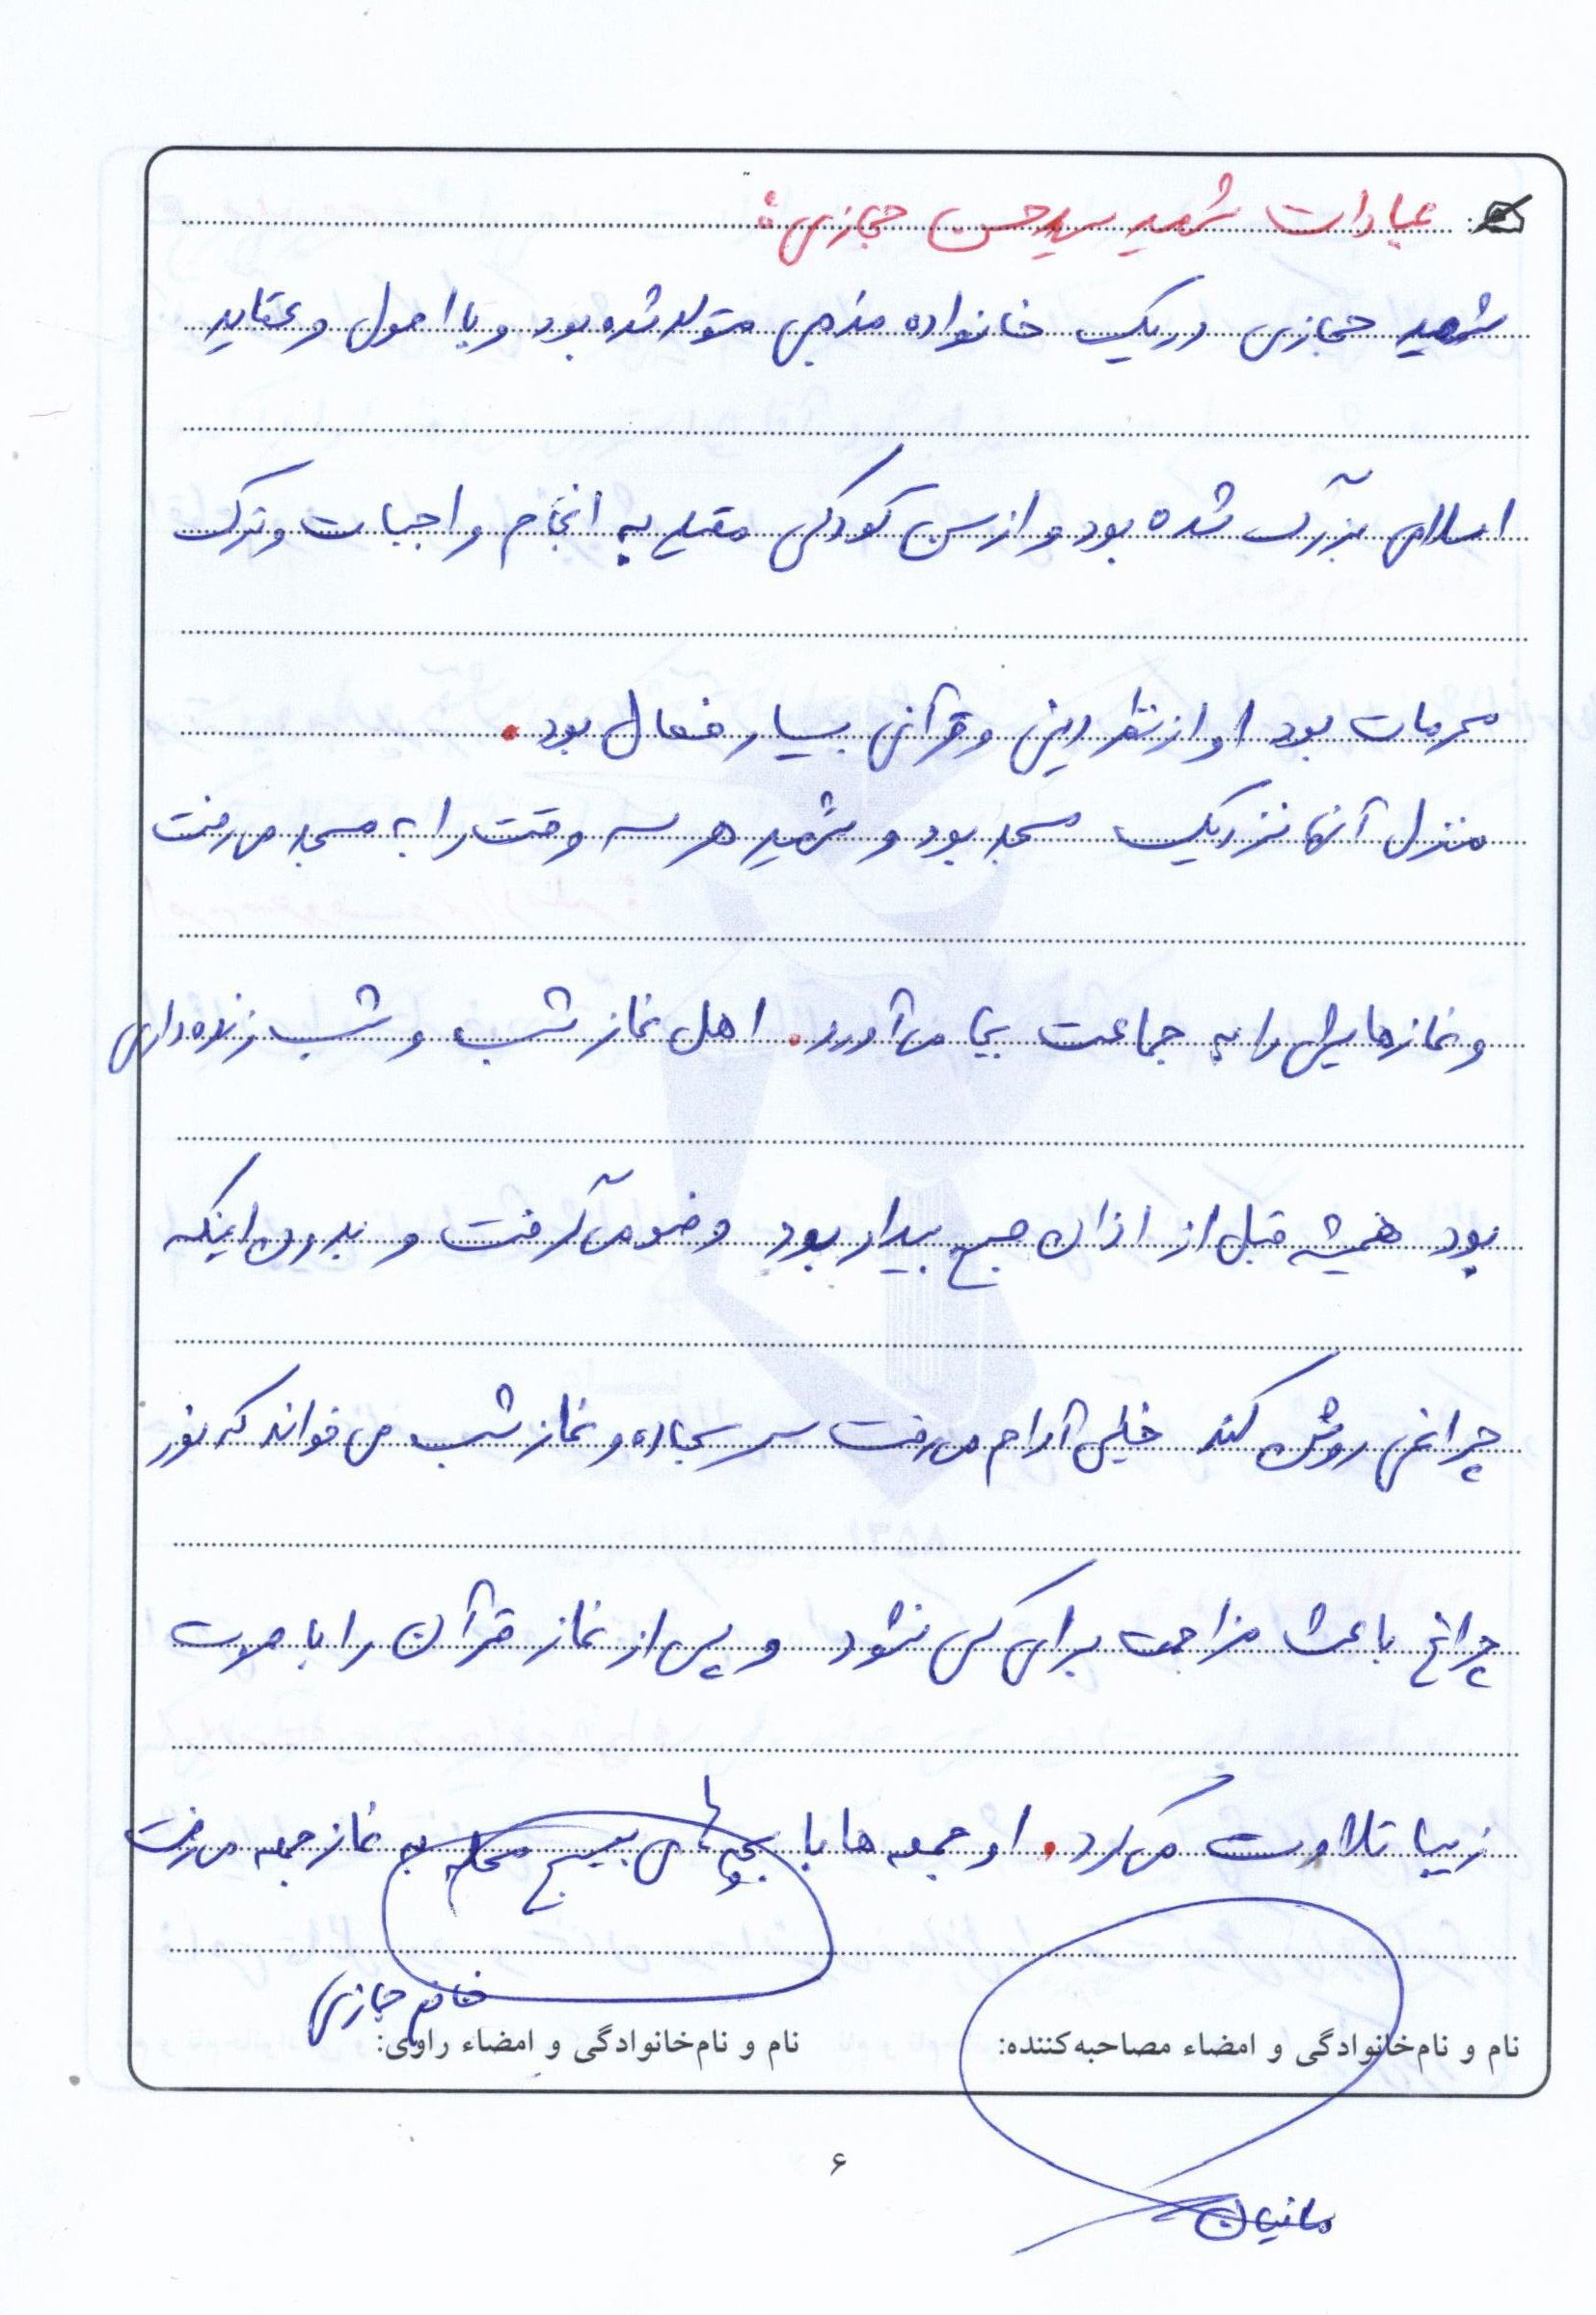 عبادات شهید سیدحسن حجازی:
شهید حجازی در یک خانواده مذهبی متولد شده بود و با اصول و عقاید
اسلامی بزرگ شده بود و از سن کودکی مقید به انجام واجبات و ترک
محرمات بود او از نظر دینی و قرآنی بسیار فعال بود.
منزل آنها نزدیک مسجد بود و شهید هر سه وقت را به مسجد می رفت
و نمازهایش را به جماعت بجا می آورد. اهل نماز شب و شب زنده داری
بود همیشه قبل از اذان صبح بیدار بود وضو می گرفت و بدون اینکه
چراغی روشن کند خیلی آرام می رفت سر سجاده و نماز شب می خواند که نور
چراغ باعث مزاحمت برای کسی نشود و پس از نماز قرآن را با صوت
زیبا تلاوت می کرد. او جمعه ها با بچه های بسیج محله به نماز جمعه می رفت
خانم حجازی
نام و نام‌خانوادگی و امضاء مصاحبه‌کننده: نام و نام‌خانوادگی و امضاء راوی:
۶
مانیان